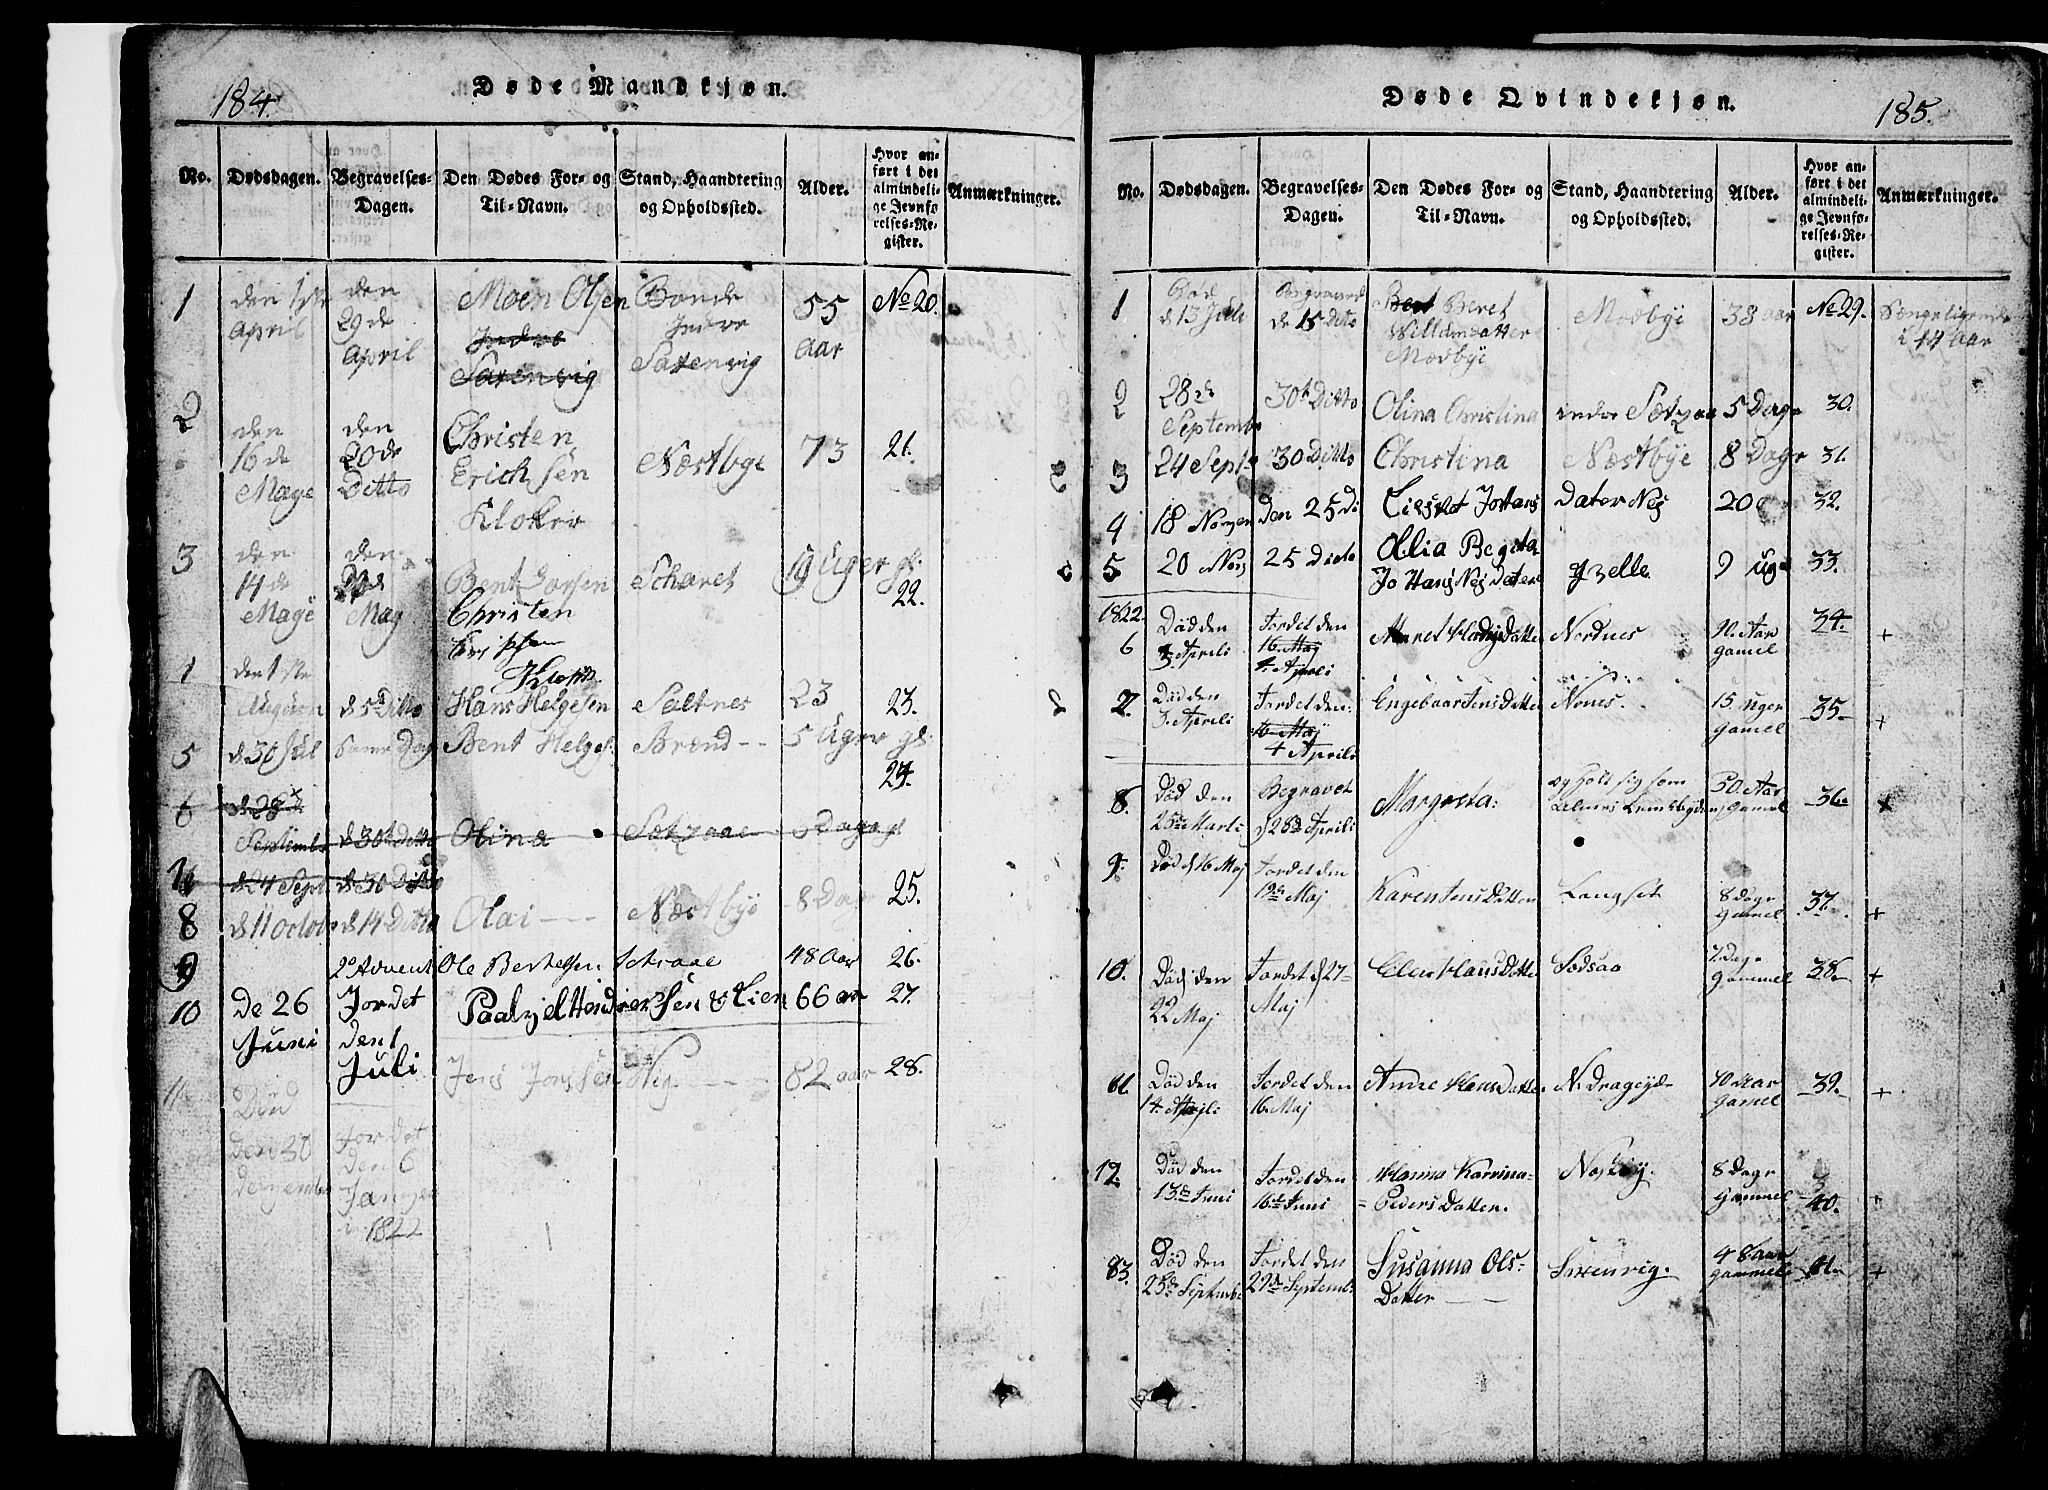 184.
Døde Mandkjøn.
No.
Dødsdagen.
Begravelses-
Dagen.
Den Dødes For- og
Til-Navn.
Stand, Haandtering
og Opholdssted.
Alder.
Hvor an-
ført i det
almindeli-
ge Jevnfø-
relses-Re-
gister.
Anmærkninger.
1
den 1ste
April
den
29de
April
Moen Olsen
Indre
Saxenvig
Bonde
Indre
Saxenvig
55
Aar
No 20.
2
den
16de
Mage
den
20de
Ditto
Christen
Erichsen
Kloker
Næstbye
73
21.
3
den
14de
Mage
den
Mag
Bent Larsen
Christen
Scharet
19 Uger gl.
22.
1
den 1ste
d 5te Ditto
Hans Helgesen
Saltnes
23
23.
5
d 30 Jul
Samme Dag
Bent Helges
Brænd --
5 Uger gl.
24.
6
d 28
Septembr
d 30t Ditto
Olina
5 Dage gl
d 24 Sept.
d 30 Ditto
8
d 11 Octobr
d 14 Ditto
Olai
Næstbye
8 Dag
25.
9
2e Advent
Ole Bertelsen
48 Aar
26.
10
De 26
Juni
Jordet
den 1
Juli
66 ar
27.
11
Død
den 30
Desember
Jordet
den 6
Januar
i 1822
Jens Jonssen
82 aar
28.
185.
Døde Qvindekjøn.
No.
Dødsdagen.
Begravelses-
Dagen.
Den Dødes For- og
Til-Navn.
Stand, Haandtering
og Opholdssted.
Alder.
Hvor an-
ført i det
almindeli-
ge Jevnfø-
relses-Re-
gister.
Anmærkninger.
1
Død
d 13 Juli
Begraved
de 15 dito
Beret
Willumdatter
Modbye
Modbye
38 aar
No 29.
Sengeligende
i 14 Aar
2
28de
Septembr
30t Ditto
Olina Christina
indre
5 Dage
30.
3
24 Septr
30 Ditto
Christina
Næstbye
8 Dage
31.
4
18
den 25 Di
Dater Nes
20
32.
5
20 Nov
25 Dito
Ollia
9 uge
33.
1822
6
Død den
3. Aprili
Jordet den
16. Maj
4. Aprili
Maret HansDatter
Nordnes
90. Aar
gamel
34.
+
7.
Død den
3. Aprili
Jordet den
16. Maj
4 Aprili
Engebaar JensDatter
Nones.
15. uger
gamel
35
+
8.
Død den
25de Marti
Begravet
d 28de Aprili
Margreta:
50. Aar
gamel
36
+
9.
Død d 16 Maj
Jordet den
19de Maj
Karen JensDatter
Langset
8 dage
gamel
37.
+
10.
Død den
22 Maj
Jordet d 27
Maj
Elen HansDatter
Sodsaa
7. Dage
gammel
38
+
11.
Død den
14. Aprili
Jordet den
16. Maj
Anne HansDatter
N. Drageyde
70 Aar
gamel
39.
+
12.
Død den
13de Juni
Jordet den
16de Juni
Hanna Karrina
PedersDatter.
Nestby.
8 Dage
gammel
40.
+
83.
Død den
25de Septembr
Jordet den
29de Septembr
Susanna Ols-
Datter
Saxenvig.
48 aar
gammel
41
+